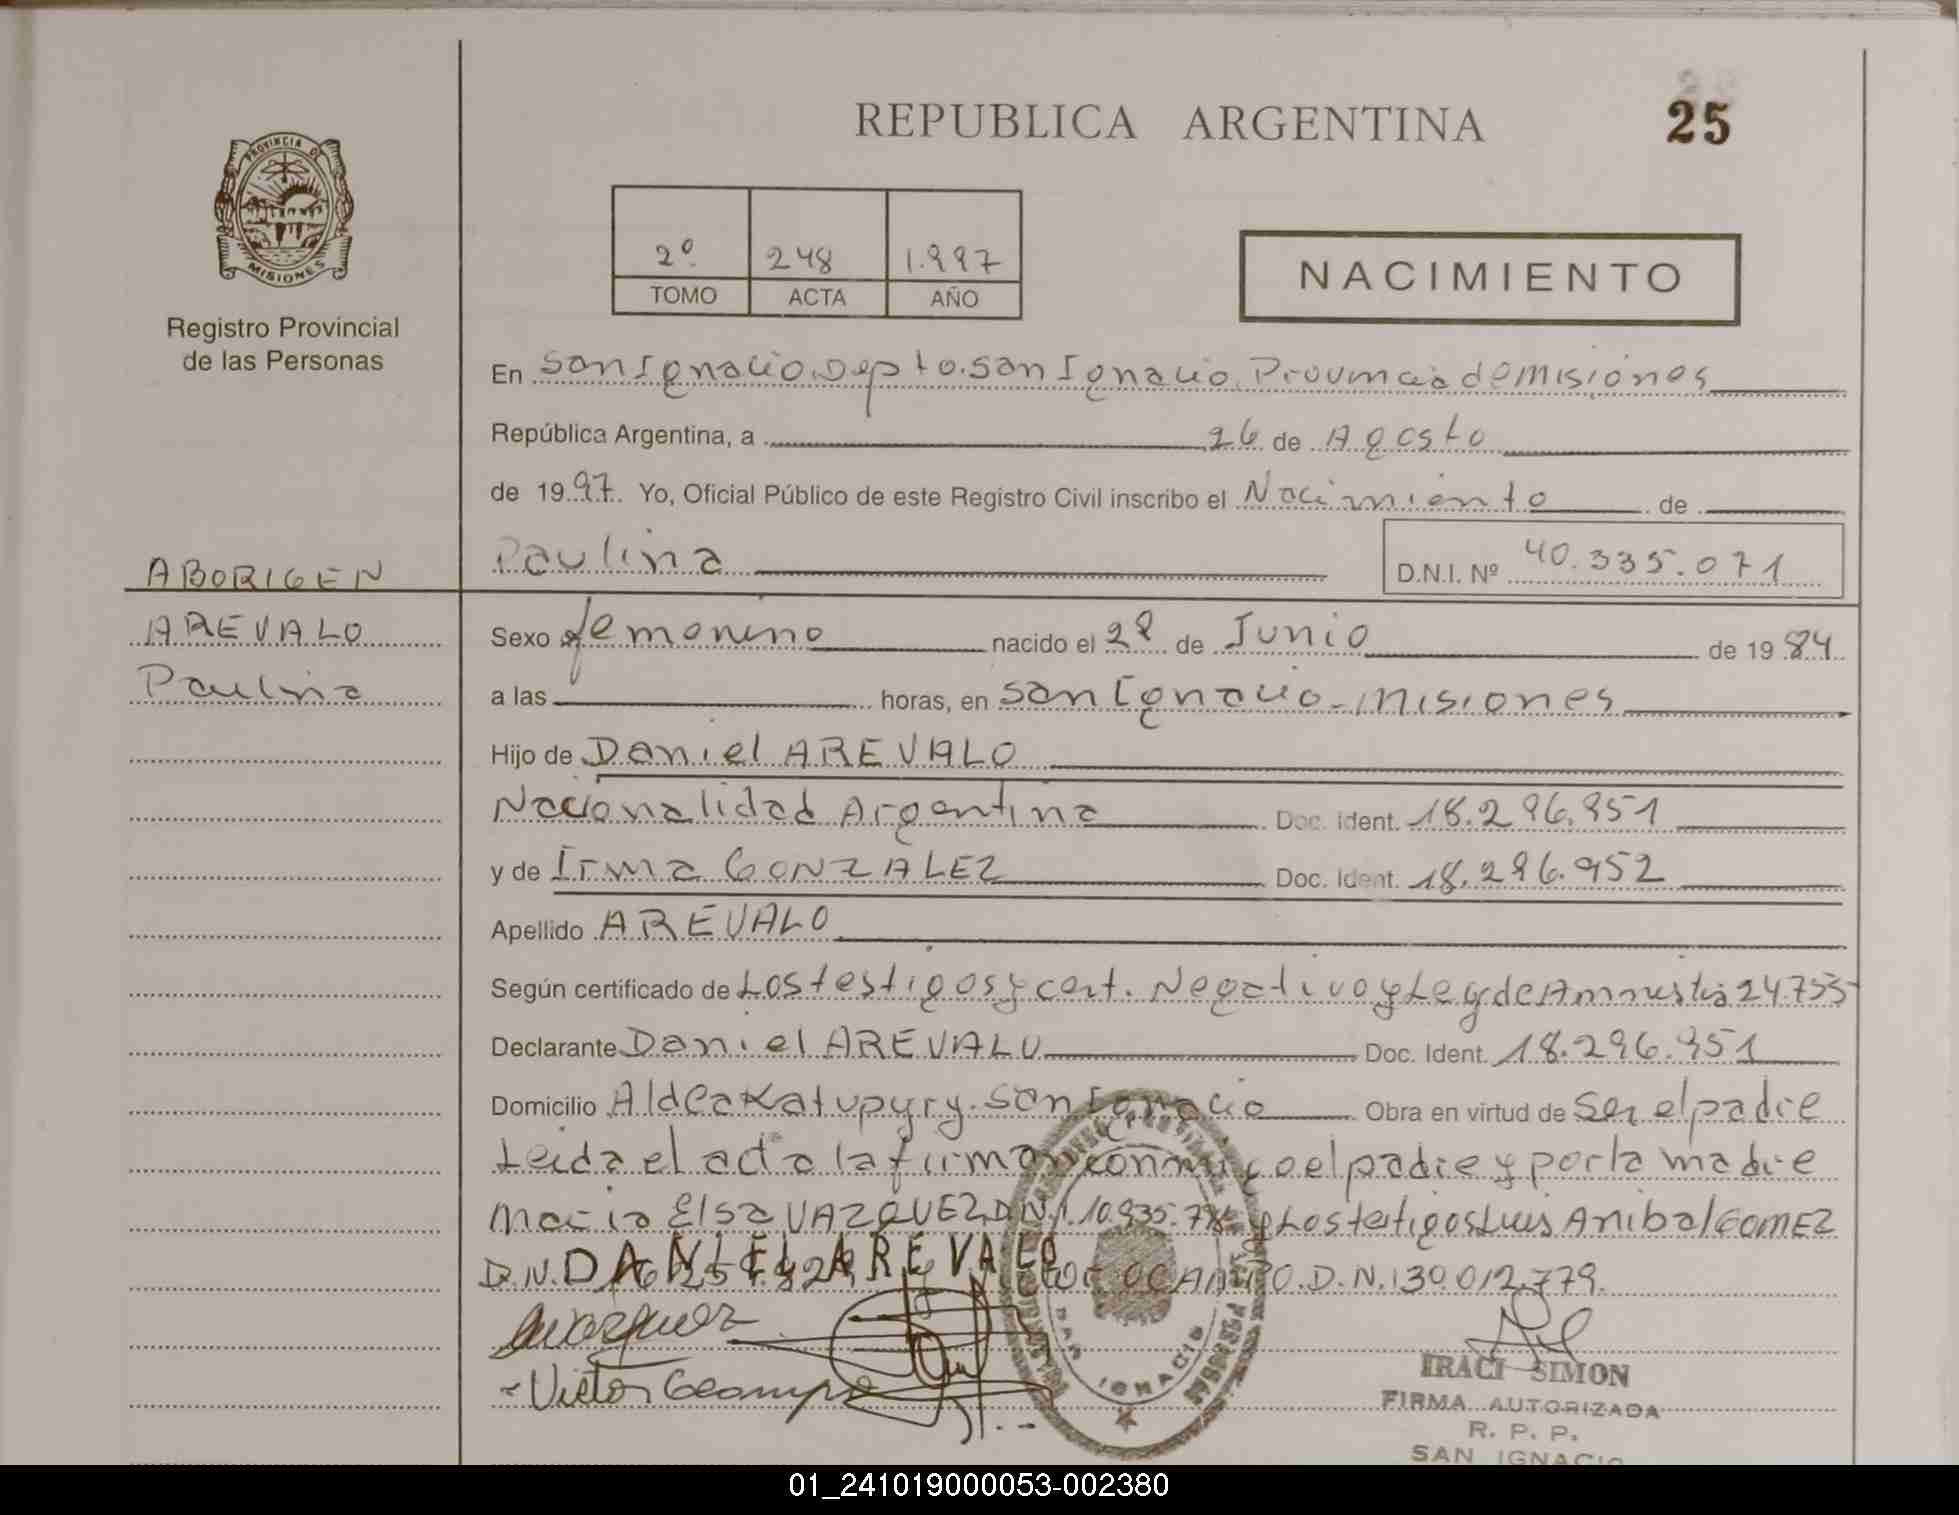 REPUBLICA ARGENTINA
25
PROVINCIA DE
MISIONES
Registro Provincial
de las Personas
2º 248 1.997
TOMO ACTA AÑO
NACIMIENTO
En San Ignacio. Depto. San Ignacio. Provincia de Misiones
República Argentina, a 26 de Agosto
de 1997. Yo, Oficial Público de este Registro Civil inscribo el Nacimiento de
ABORIGEN
Paulina
D.N.I. Nº 40.335.071
AREVALO
Paulina
Sexo femenino nacido el 28 de Junio de 1984
a las horas, en San Ignacio - Misiones
Hijo de Daniel AREVALO
Nacionalidad Argentina Doc. Ident. 18.296.951
y de Irma GONZALEZ Doc. Ident. 18.296.952
Apellido AREVALO
Según certificado de Los testigos y cert. Negativo y Ley de Amnistia 24.755
Declarante Daniel AREVALO Doc. Ident. 18.296.951
Domicilio Aldea Katupyry. San Ignacio Obra en virtud de Ser el padre
Leida el acta la firman conmigo el padre y por la madre
Maria Elsa VAZQUEZ D.N.I. 10.935. y Los testigos Luis Anibal GOMEZ
D.N. OCAMPO. D.N.I 30.012.779.
DANIEL AREVALO
Vazquez
Victor Ocampo
SAN IGNACIO
IRACI SIMON
FIRMA AUTORIZADA
R. P. P.
SAN IGNACIO
01_241019000053-002380